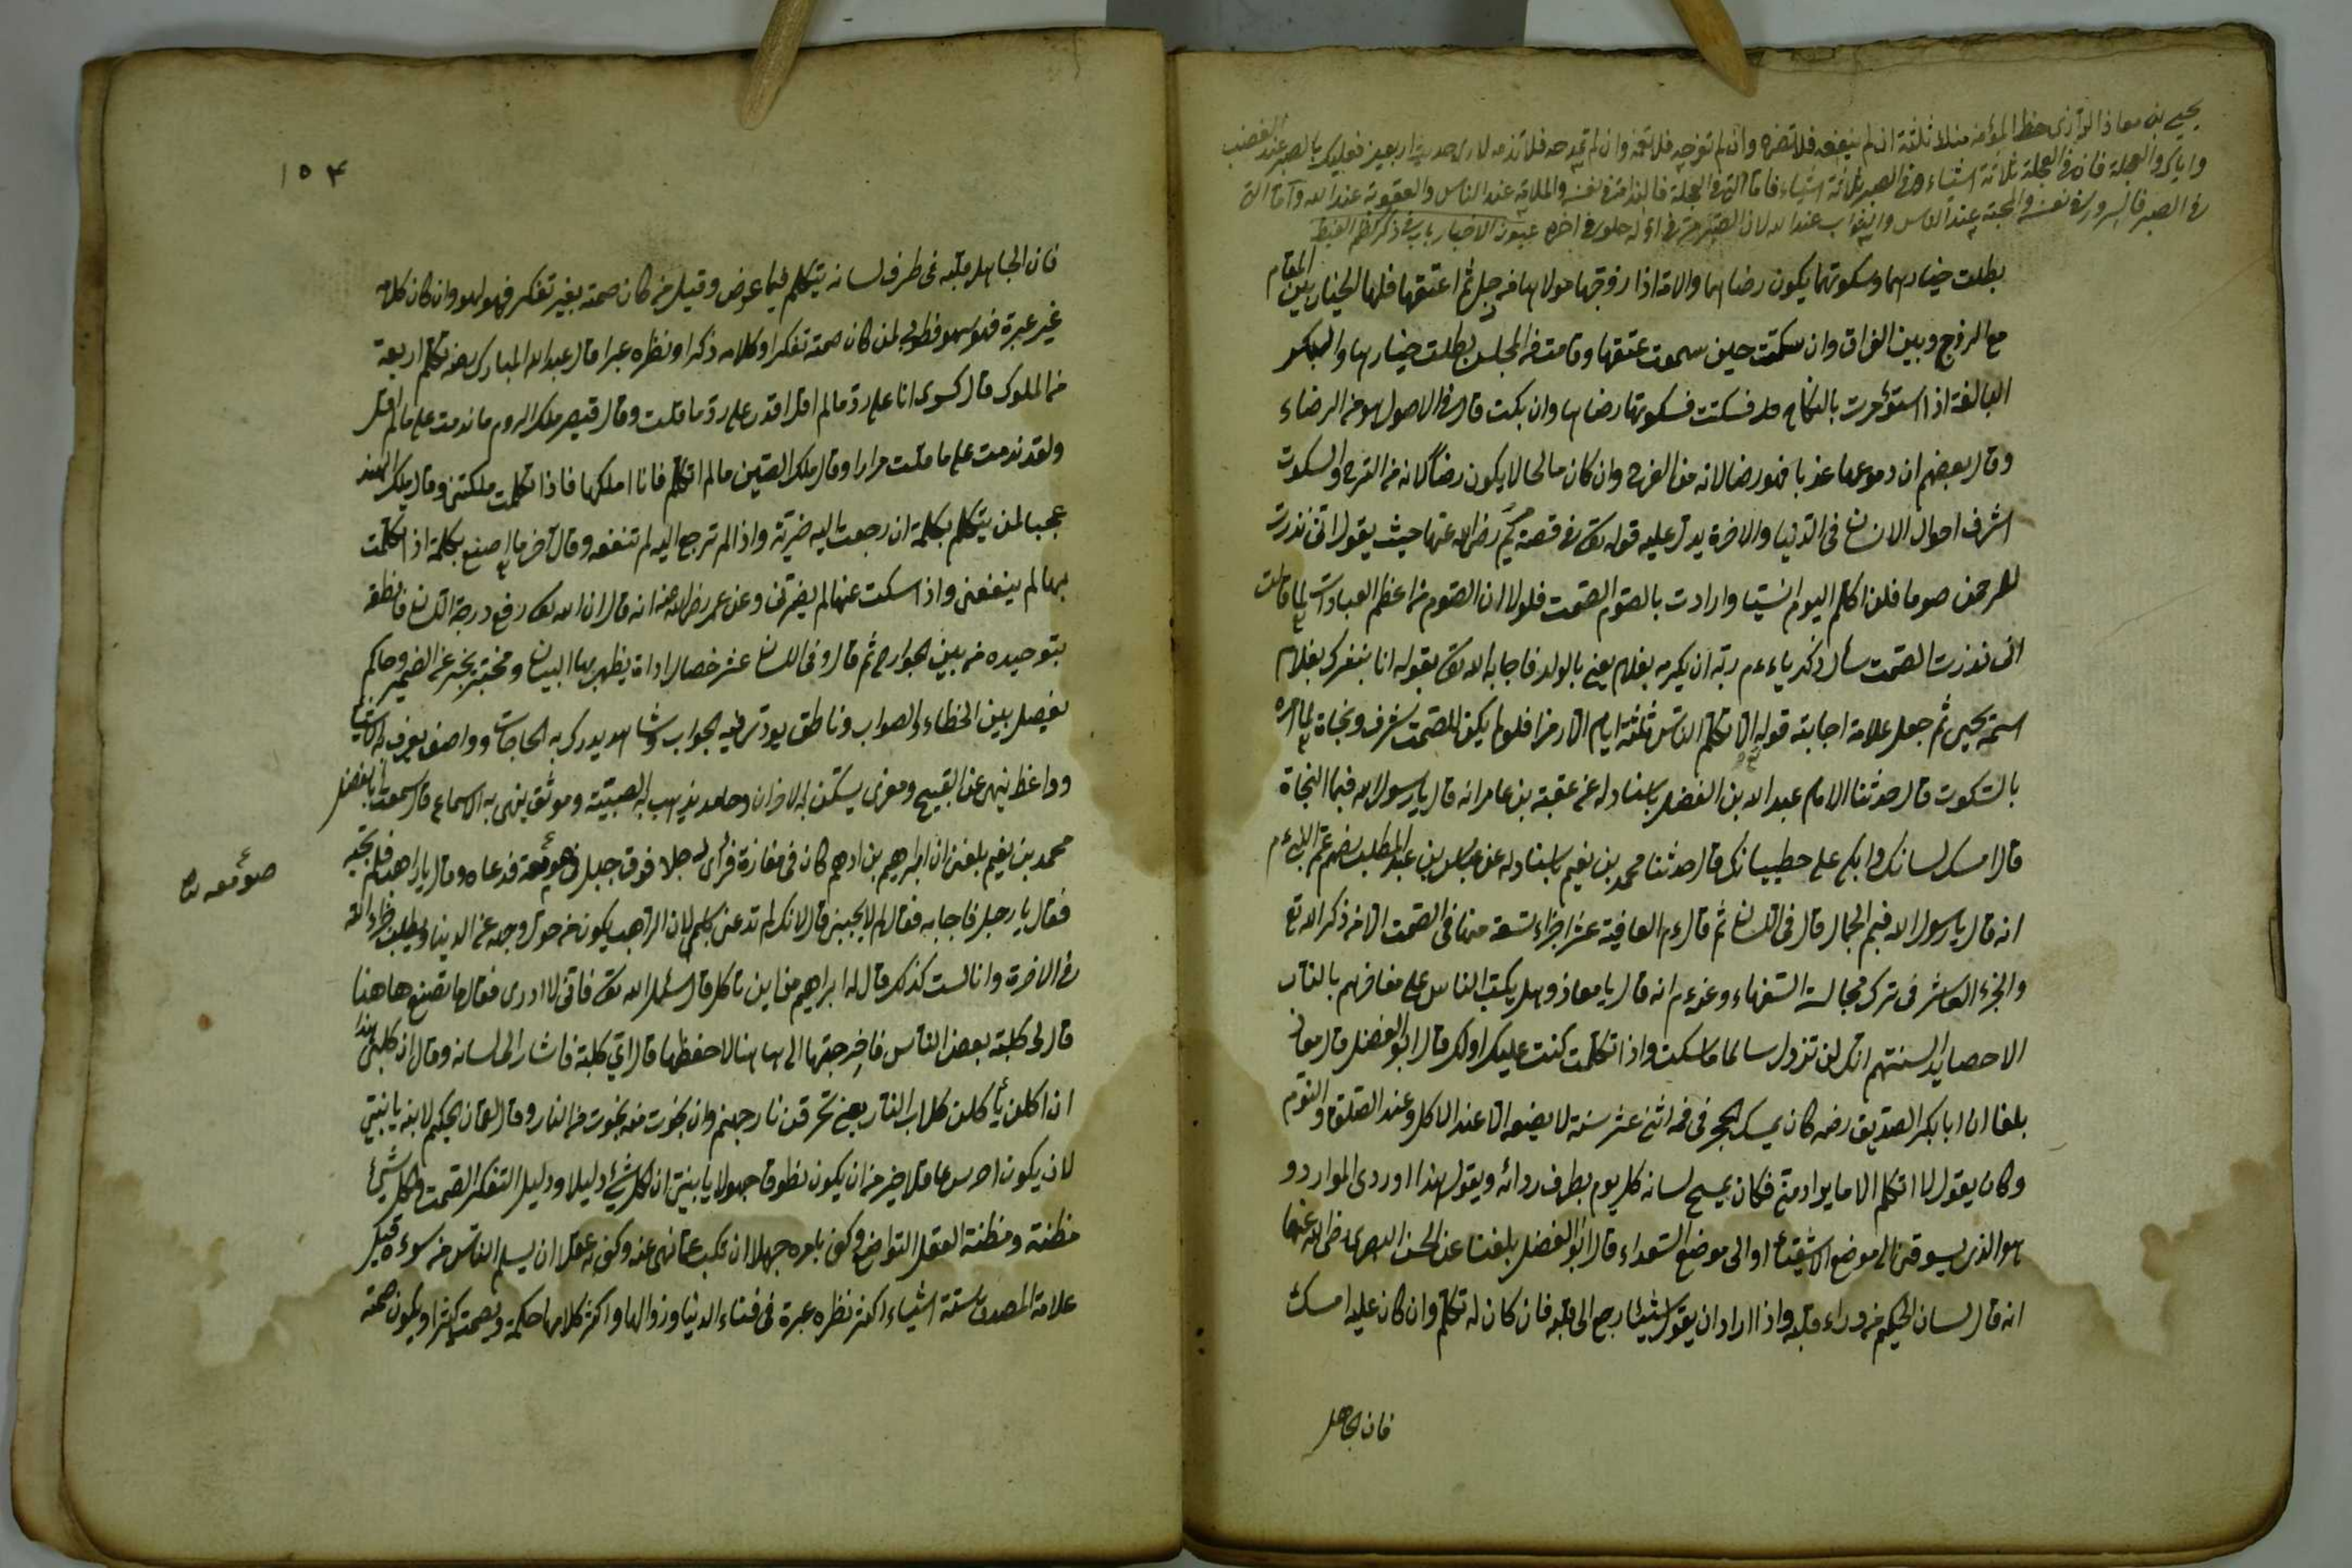 يحيى بن معاذ الرازي حظ المؤمن منك ثلثة ان لم ينفعه فلا تضره وان لم تفرحه فلا تغمه وان لم تمدحه فلا تذمه لاربعين فعليك بالصبر عند الغضب
واياك والعجلة فان في العجلة ثلاثة اشياء وفي الصبر ثلاثة اشياء فاما التي في العجلة فالندامة في نفسه والملامة عند الناس والعقوبة عند الله واما التي
في الصبر فالسرور في نفسه والمحبة عند الناس والثواب عند الله لان الصبر مر في اوله حلو في اخره عيون الاخبار باب في ذكر كظم الغيظ
بطلت خيارهما وسكوتهما يكون رضاهما والامة اذا زوجها مولاها من رجل ثم اعتقها فلها الخيار بين المقام
مع الزوج وبين الفراق وان سكتت حين سمعت عتقها وقامت من المجلس بطلت خيارها والبكر
البالغة اذا استؤمرت بالنكاح فسكتت فسكوتها رضاها وان بكت قال في الاصول هو من الرضاء
وقال بعضهم ان دموعها عذبا فهو رضا لانه من الفرح وان كان مالحا لا يكون رضاً لانه من الترح والسكوت
اشرف احوال الانسان في الدنيا والاخرة يدل عليه قوله تع في قصة مريم رضى الله عنها حيث يقول انى نذرت
للرحمن صوما فلن اكلم اليوم انسيا وارادت بالصوم الصمت فلولا ان الصوم من اعظم العبادات لما قالت
انى نذرت الصمت سأل زكرياء ءم ربه ان يكرمه بغلام يعنى بالولد فاجابه الله تع بقوله انا نبشرك بغلام
اسمه يحيى ثم جعل علامة اجابته قوله الا تكلم الناس ثلثة ايام الا رمزا فلو لم يكن للصمت شرف ونجاة لما امره
بالسكوت قال حدثنا الامام عبد الله بن الفضل باسناد له عن عقبة بن عامر انه قال يا رسول الله فيما النجاة
قال امسك لسانك وابك على خطيباتك قال حدثنا محمد بن نعيم باسناد له عن عباس بن عبد المطلب رضه عم النبى ءم
انه قال يا رسول الله فيم الجمال قال في اللسان ثم قال ءم العافية عشر اجزاء تسعة منها في الصمت الا من ذكر الله تع
والجزء العاشر في ترك مجالسة السفهاء وعنه ءم انه قال يا معاذ وهل يكب الناس على مناخرهم بالنار
الا حصايد السنتهم انك لن تزول سالما ما سكت واذا تكلمت كنت عليك اولك قال ابو الفضل قال معاذ
بلغنا ان ابا بكر الصديق رضه كان يمسك الحجر في فمه اثنى عشر سنة لا يضعه الا عند الاكل وعند الصلوة والنوم
وكان يقول لا اتكلم الا ما يوادمتى فكان يمسح لسانه كل يوم بطرف ردائه ويقول هذا اوردى الموارد و
هو الذى يسوقنى الى موضع الاشقياء او الى موضع السعداء قال ابو الفضل بلغنا عن الحسن البصرى رضى الله عنهما
انه قال لسان الحكيم من وراء قلبه واذا اراد ان يقول شيئا رجع الى قلبه فان كان له تكلم وان كان عليه امسك
فان الجاهل
١٥٣
فان الجاهل قلبه في طرف لسانه يتكلم فيما عرض وقيل من كان صمته بغير تفكر فهو لهو وان كان كلامه
غير عبرة فهو سهو فطوبى لمن كان صمته تفكرا وكلامه ذكرا ونظره عبرا قال عبد الله المبارك رضه تكلم اربعة
من الملوك قال كسرى انا على رد ما لم اقل اقدر على رد ما قلت وقال قيصر ملك الروم ما ندمت على ما لم اقل
ولقد ندمت على ما قلت مرارا وقال ملك الصين ما لم اتكلم فانا املكها فاذا تكلمت ملكتنى وقال ملك الهند
عجبا لمن يتكلم بكلمة ان رجعت اليه ضرته واذا لم ترجع اليه لم تنفعه وقال اخر ما اصنع بكلمة اذا تكلمت
بها لم ينفعنى واذا سكت عنها لم يضرنى وعن عمر رضى الله عنه انه قال ان الله تع رفع درجة اللسان فانطقه
بتوحيده من بين الجوارح ثم قال وفي اللسان عشر خصال اداة يظهر بها البيان ومخبر يخبر عن الضمير وحاكم
يفصل بين الخطاء والصواب وناطق يودى فيه الجواب وشاهد يدرك به الحاجات وواصف يعرف به الاشياء
وواعظ ينهى عن القبيح ومعزى يسكن به الاحزان وحامد يذهب به الضبيئة وموثق يلهى به الاسماع قال سمعت ابا الفضل
محمد بن نعيم بلغنى ان ابراهيم بن ادهم كان في مفازة فرأى رجلا فوق جبل في صومعة فدعاه وقال يا راهب فلم يجبه
فقال يا رجل فاجابه فقال لم لا تجيبنى قال لانك لم تدعنى باسمى لان الراهب يكون من حول وجهه عن الدنيا ويطلب رضاء الله
في الاخرة وانا لست كذلك قال له ابراهيم من اين تاكل قال سئل الله تع فانى لا ادرى فقال ما تصنع هاهنا
قال لى كلبة بعض الناس فاخرجتها الى هاهنا لاحفظها قال اى كلبة فاشار الى لسانه وقال ان كلبتى هذا
ان اكلن يأكلن كلاب النار يعنى تحرقن نار جهنم وان نجوت منه نجوت من النار وقال لقمان الحكيم لابنه يا بنى
لان يكون اخرس عاقلا خير من ان يكون نطوقا جهولا يا بنى ان لكل شئ دليلا ودليل التفكر الصمت ولكل شئ
مظنة ومظنة العقل التواضع وكفى بالمرء جهلا ان يركب عما نهى عنه وكفى به عقلا ان يسلم الناس من سوءه قيل
علامة المصدق ستة اشياء اكثر نظره عبرة في فناء الدنيا وزوالها واكثر كلامها حكمة ويصمت كثيرا ويكون صمته
صومعه